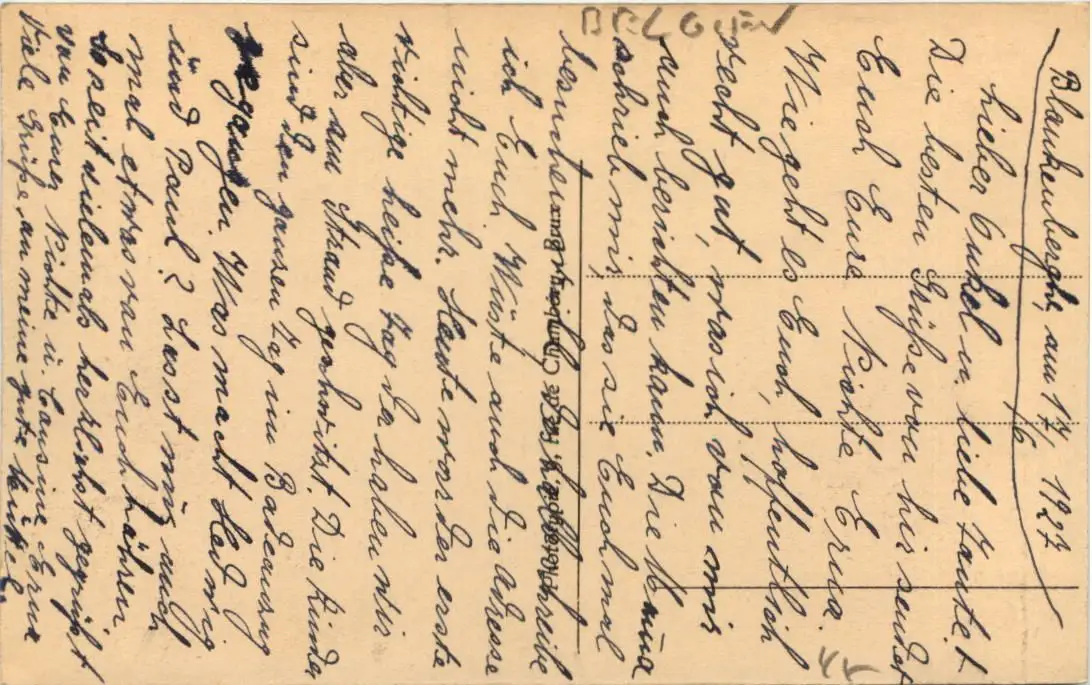 BELGIEN
Blankenberghe, am 17/6 1927
Lieber Onkel u. liebe Tante!
Die besten Grüße von hir sendet
Euch Eure Nichte Erna.
Wie geht es Euch, hoffentlich
recht gut, was ich von mir
auch berichten kann. Die Mama
schrieb mir, das sie Euch mal
besuchen will. Deshalb schreibe
ich Euch. Wüste auch die Adresse
nicht mehr. Heute wor der erste
richtige heiße Tag. Da haben wir
aber am Strand geschwitzt. Die Kinder
sind den ganzen Tag im Badeanzug
gegangen. Was macht Hedwig
und Paul? Lasst mich auch
mal etwas von Euch hören
So seit vielmals herzlichst gegrüßt
von Eurer Nichte u. Cousine Erna
Viele Grüße an meine gute Mutti.